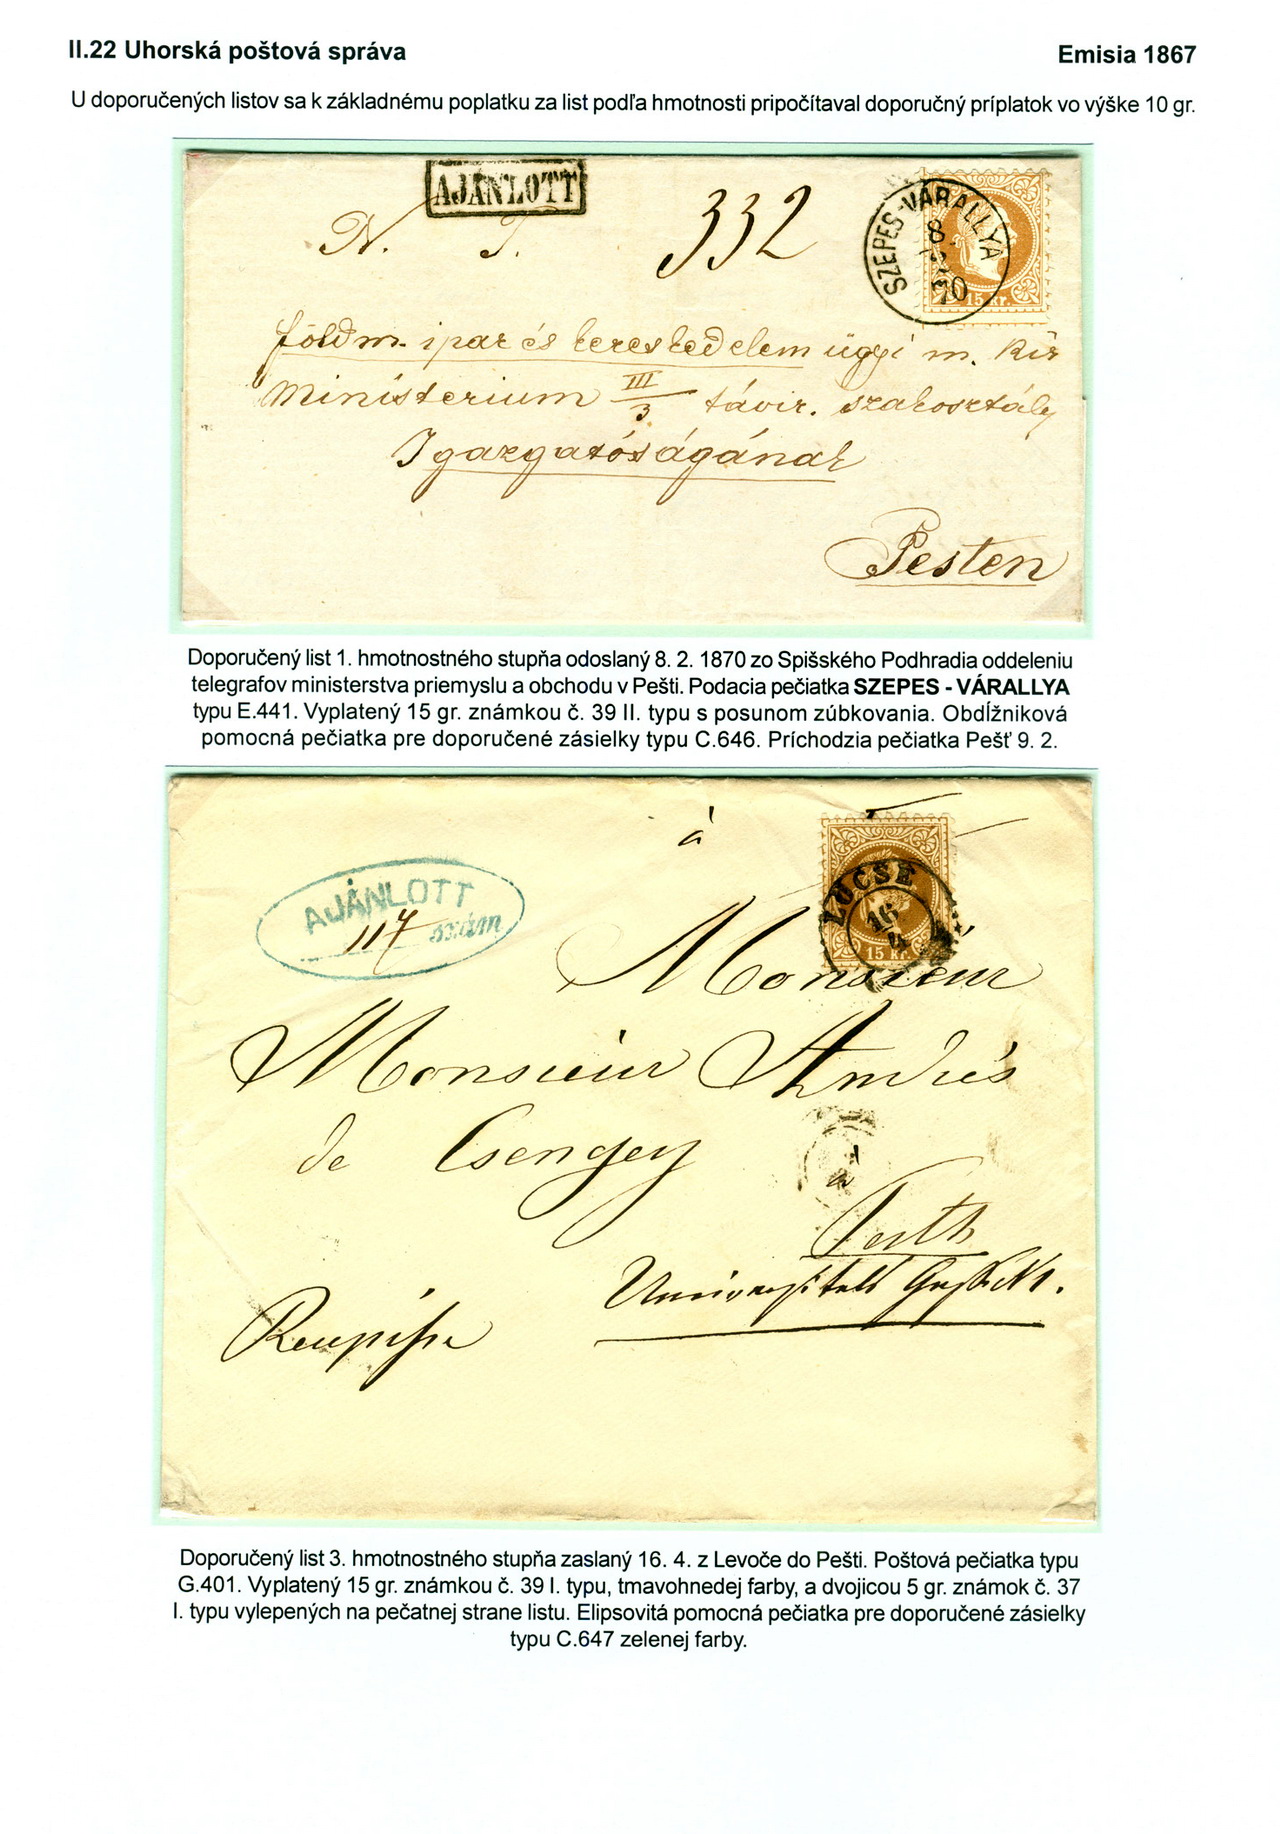 II.22 Uhorská poštová správa
Emisia 1867
U doporučených listov sa k základnému poplatku za list podľa hmotnosti pripočítaval doporučný príplatok vo výške 10 gr.
AJÁNLOTT
N. I. 332
SZEPES-VÁRALLYA
8
2
70
15 kr.
földm. ipar és kereskedelem ügyi m. kir
Ministerium III/3 távir. szakosztály
Igazgatóságának
Pesten
Doporučený list 1. hmotnostného stupňa odoslaný 8. 2. 1870 zo Spišského Podhradia oddeleniu
telegrafov ministerstva priemyslu a obchodu v Pešti. Podacia pečiatka SZEPES - VÁRALLYA
typu E.441. Vyplatený 15 gr. známkou č. 39 II. typu s posunom zúbkovania. Obdĺžniková
pomocná pečiatka pre doporučené zásielky typu C.646. Príchodzia pečiatka Pešť 9. 2.
à
AJÁNLOTT
117 szám
LŐCSE
16
4
15 kr.
Monsieur
Monsieur Andrés
de Csengey
à
Pesth
Doporučený list 3. hmotnostného stupňa zaslaný 16. 4. z Levoče do Pešti. Poštová pečiatka typu
G.401. Vyplatený 15 gr. známkou č. 39 I. typu, tmavohnedej farby, a dvojicou 5 gr. známok č. 37
I. typu vylepených na pečatnej strane listu. Elipsovitá pomocná pečiatka pre doporučené zásielky
typu C.647 zelenej farby.